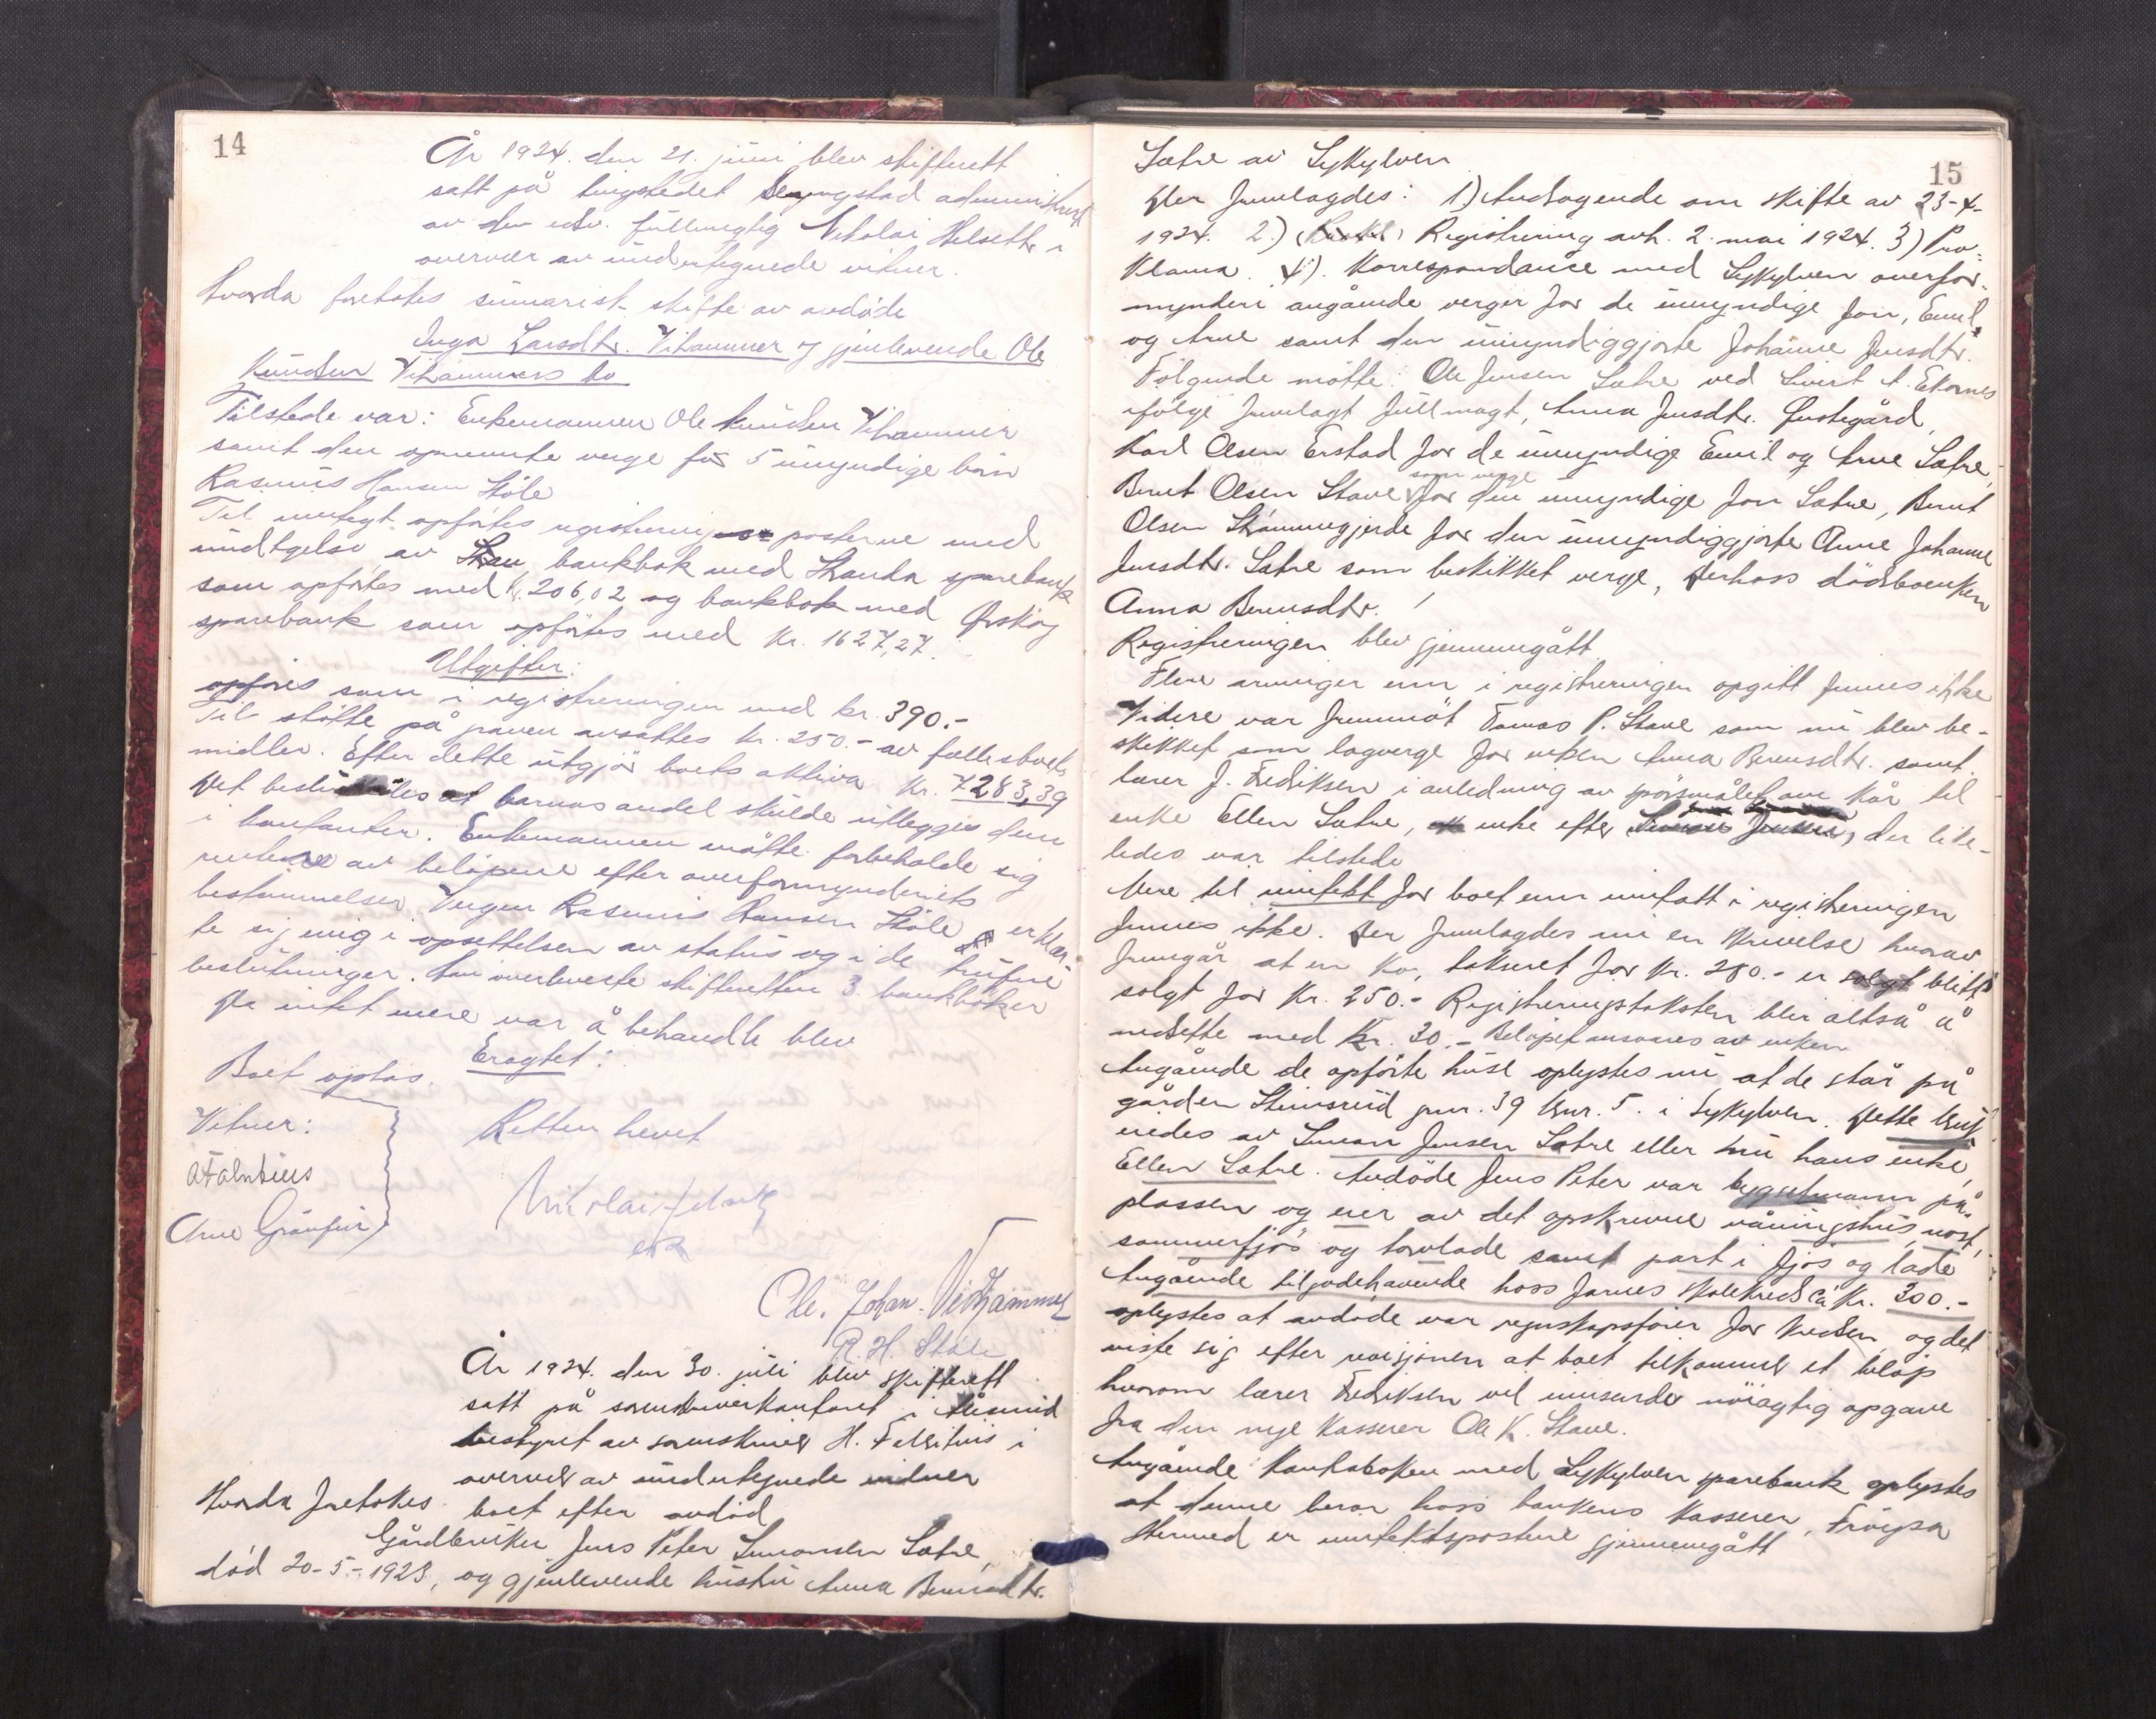 14
År 1924. den 21. juni blev skifterett
satt på tingstedet Sløgstad administrert
av den edsv. fullmegtig Nikolai Helseth i
overvær av undertegnede vitner.
Hvorda foretokes summarisk skifte av avdöde
Inga Larsdtr. Vihammer og gjenlevende Ole
Knudsen Vihammers bo
Tilstede var: Enkemannen Ole Knudsen Vihammer
samt den opnevnte verge for 5 umyndige barn
Rasmus Hansen Ståle
Til inntegt opförtes registrerings posterne med
undtgelse av bankbok med Stranda sparebank
som opförtes med kr. 206,02 og bankbok med Ørskog
sparebank som opförtes med Kr. 1627,27.
Utgifter:
opföres som i registreringen med kr. 390.-
Til stötte på graven avsattes kr. 250.- av fællesboets
midler. Efter dette utgjör boets aktiva Kr. 7283,39
Det besluttedes at barnas andel skulde utlegges dem
i kontanter. Enkemannen måtte forbeholde sig
rentene av belöpene efter overformynderiets
bestemmelser. Vergen Rasmus Hansen Ståle erklær-
te sig enig i opsettelsen av status og i de trufne
beslutninger. Han overleverte skifteretten 3 bankböker
Da intet mere var å behandle blev
Eragtet:
Boet optas.
Vitner:
Retten hevet
A Falntius
Arne Gråufui
Nikolai Helseth
esb
Ole. Johan. Vidhammer
R. H. Ståle
År 1924. den 30. juli blev skifterett
satt på sorenskriverkontoret i Ålesund
bestyret av sorenskriver H. Falsitius i
overvær av undertegnede vidner
Hvorda foretokes boet efter avdöd
Gårdbruker Jens Peter Simonsen Sætre,
död 20-5-1923, og gjenlevende hustru Anna Berntsdtr.
15
Sætre av Sykylven
Der fremlagdes: 1) Andragende om skifte av 23-4-
1924. 2.) Registrering avh. 2. mai 1924. 3) Pro-
klama. 4). Korrespondance med Sykylven overfor-
mynderi angående verger for de umyndige Jon, Emil
og Arne samt den umyndiggjorte Johanne Jensdtr.
Fölgende mötte: Ole Jensen Sætre ved Sivert A. Ekornes
ifölge fremlagt fullmagt, Anna Jensdtr. Gustegård,
Karl Olsen Erstad for de umyndige Emil og Arne Sætre,
Bernt Olsen Stave som verge for den umyndige Jon Sætre, Bernt
Olsen Strömmegjerde for den umyndiggjorte Anne Johanne
Jensdtr. Sætre som beskikket verge, derhoss dödsboenken
Anna Berntsdtr.
Registreringen blev gjennemgått
Flere arvinger enn i registreringen opgitt finnes ikke
Videre var fremmöt Tomas P. Stave som nu blev be-
skikket som lagverge for enken Anna Berntsdtr. samt
lærer J. Fredriksen i anledning av spörsmålet om kår til
enke Ellen Sætre, enke efter Simon Jensen, der like-
ledes var tilstede
Mere til inntekt for boet enn innfatt i registreringen
finnes ikke. Der fremlagdes nu en skrivelse hvorav
fremgår at en ko, taksert for kr. 280.- er blitt
solgt for Kr. 250.- Registreringstaksten blir altså å
nedsette med Kr. 30.- Belöpet ansvares av enken
Angående de opförte huse oplystes nu at de står på
gården Stensreid gnr. 39 bnr. 5. i Sykylven. Dette bruk
eiedes av Simon Jensen Sætre eller nu hans enke,
Ellen Sætre. Avdöde Jens Peter var bygselmann på
plassen og eier av det opskrevne våningshus, nost,
sommerfjös og torvlade samt part i fjös og lade
Angående tilgodehavende hoss Jarnes skolekreds ca Kr. 300.-
oplystes at avdöde var regnskapsförer for kredsen, og det
viste sig efter revisjonen at boet tilkommer et belöp
hvorom lærer Fredriksen vil innsende nöiagtig opgave
fra den nye kasserer Ole K. Stave.
Angående kontraboken med Sykylven sparebank oplystes
at denne beror hoss bankens kasserer, Fröysa
Hermed er inntektspostene gjennemgått